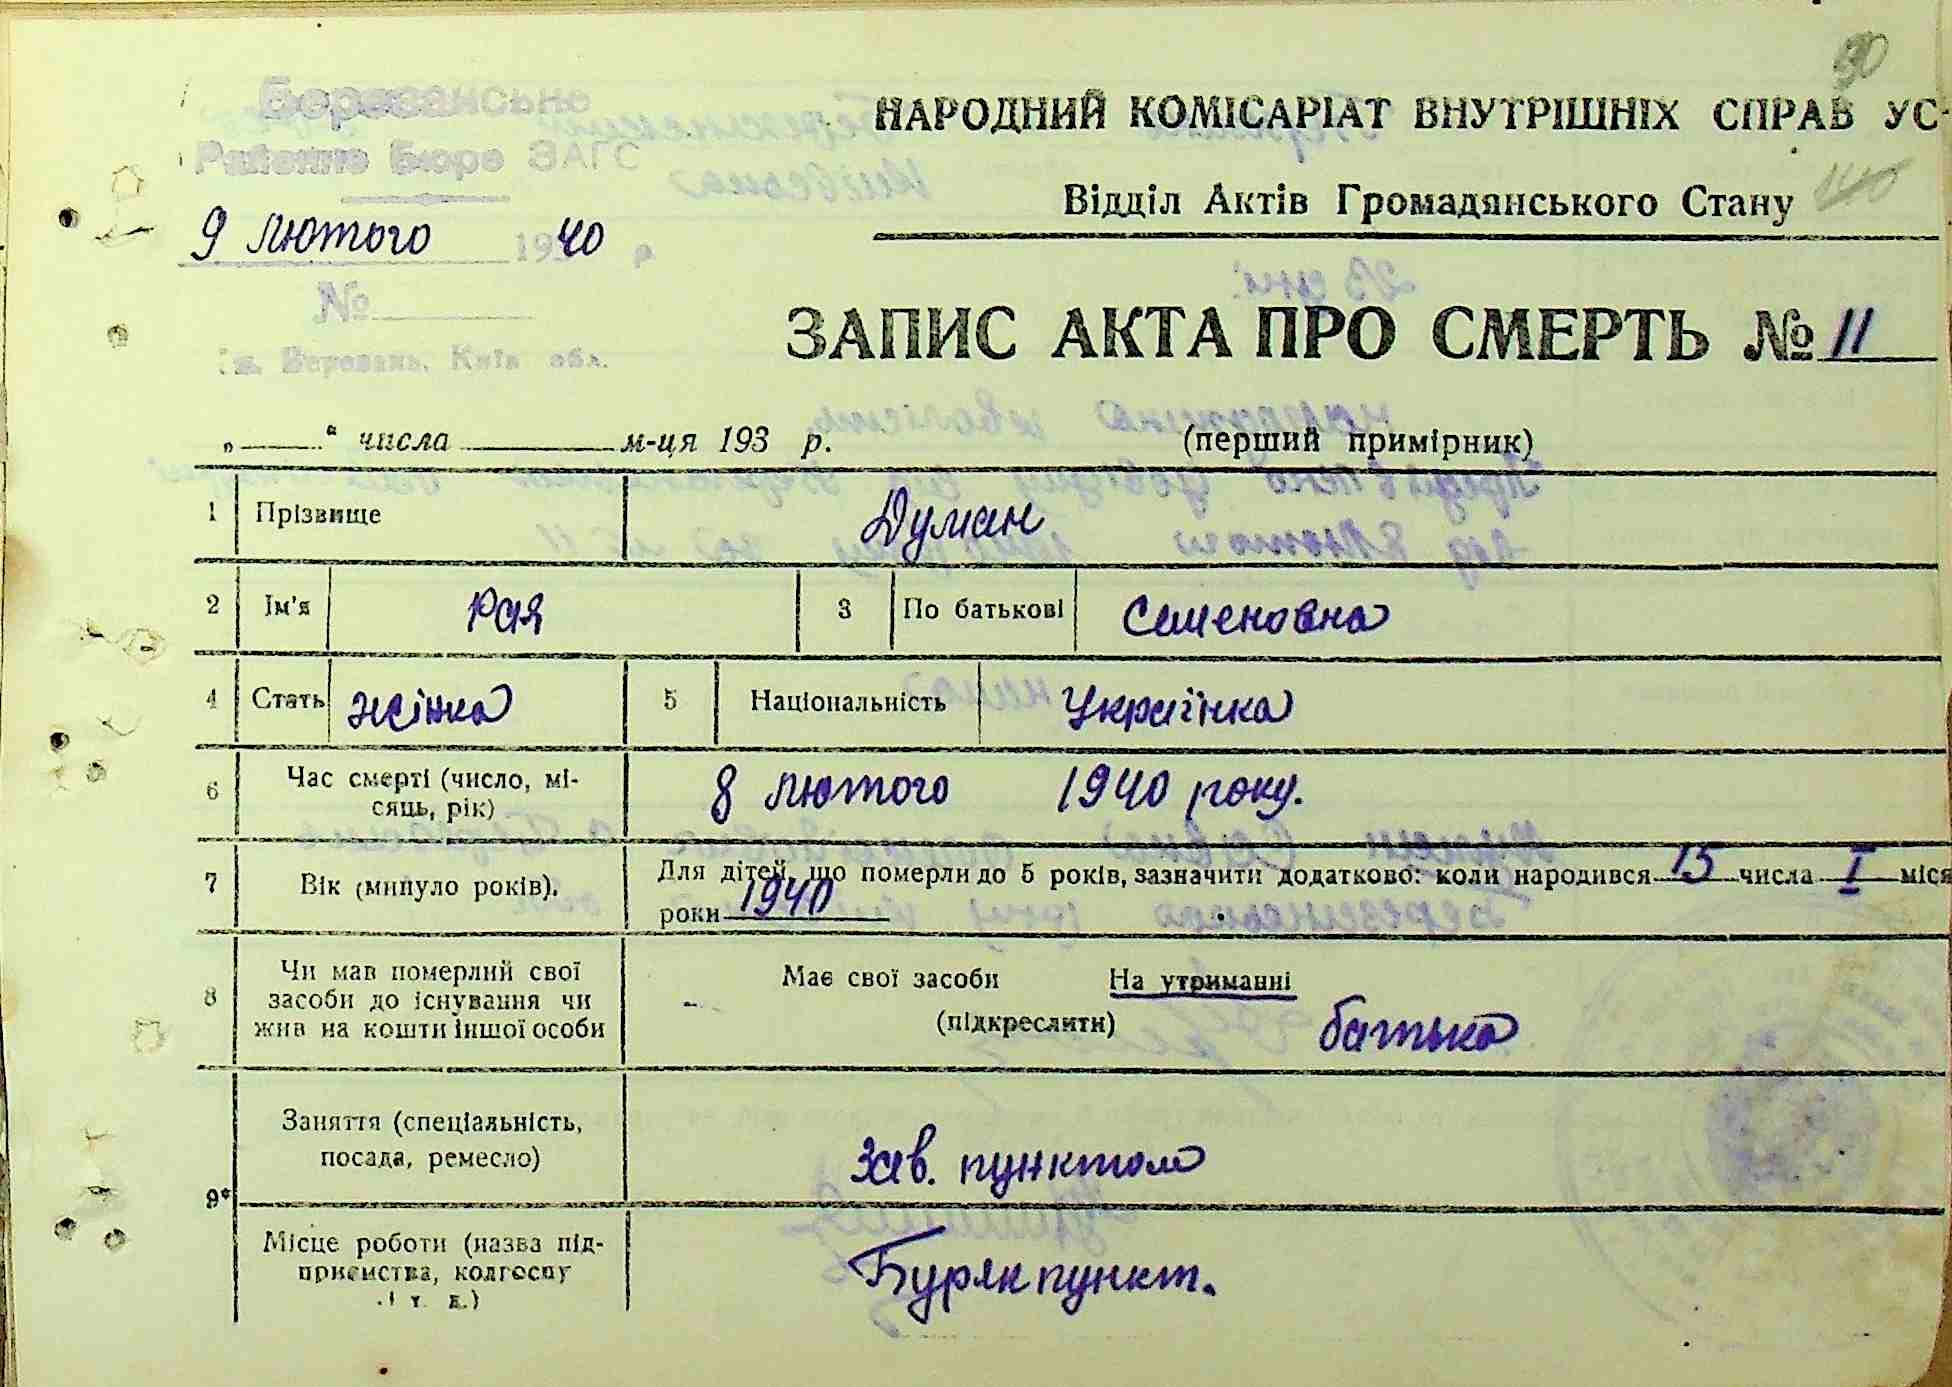 90
Березанське
Районне Бюро ЗАГС
НАРОДНИЙ КОМІСАРІАТ ВНУТРІШНІХ СПРАВ УС
Відділ Актів Громадянського Стану
140
9 лютого 1940 р
№
м. Березань, Київ обл.
ЗАПИС АКТА ПРО СМЕРТЬ № 11
„ “ числа м-ця 193 р. (перший примірник)
1 Прізвище Думан
2 Ім'я Рая 3 По батькові Семеновна
4 Стать жінка 5 Національність Українка
6 Час смерті (число, мі-
сяць, рік) 8 лютого 1940 року.
7 Вік (минуло років). Для дітей, що померли до 5 років, зазначити додатково: коли народився 15 числа I міся
роки 1940
8 Чи мав померлий свої
засоби до існування чи
жив на кошти іншої особи - Має свої засоби На утриманні
(підкреслити) батька
9* Заняття (спеціальність,
посада, ремесло) Зав. пунктом
Місце роботи (назва під-
приємства, колгоспу
і т. д.) Бурякпункт.